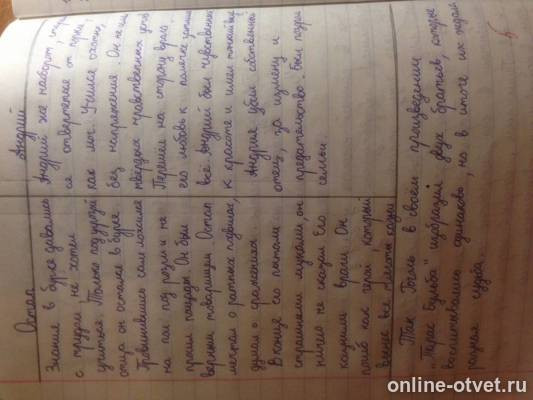 Остап
Знания в бурсе давались
с трудом, не хотел
учиться. Только под угрозой
отца он остался в бурсе.
Провинившись сам ложился
на пол под розги и не
просил пощады. Он был
верным товарищем Остап
мечтал о ратных подвигах,
думал о сражениях.
В конце его пытали
страшными муками, он
ничего не сказал. Его
казнили враги. Он
погиб как герой, который
вынес все
Андрий
Андрий же наоборот,
ся отвертеться от порки,
как мог. Учился охотно,
без напряжения. Он не
твердых нравственных
Перешёл на сторону врага
его любовь к полячке
всё. Андрий был чувственный
к красоте и имел тонкий
Андрия убил собственный
отец, за измену и
предательство. Был позор
семьи.
Так Гоголь в своём произведении
"Тарас Бульба" изобразил двух братьев, которые
воспитывались одинаково, но в итоге их ждала
разная судьба.
5
online-otvet.ru